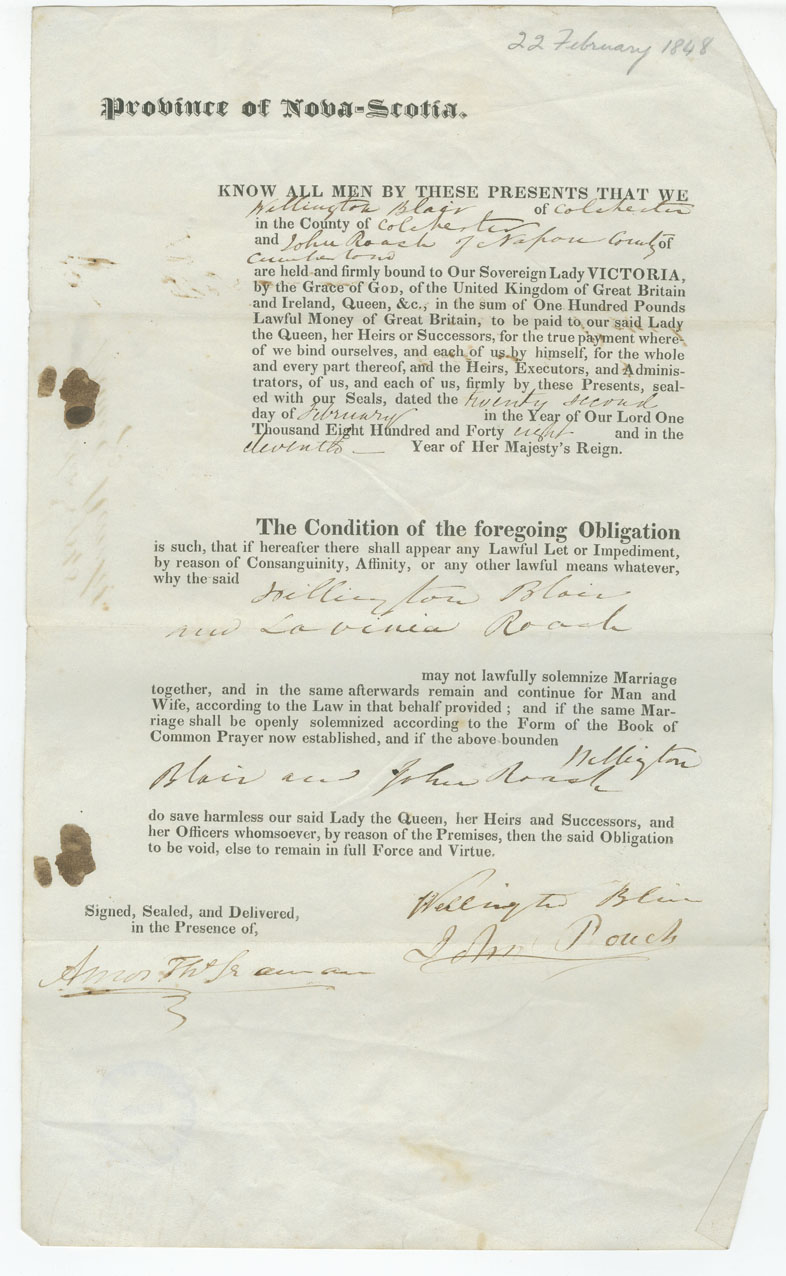 22 February 1848
Province of Nova-Scotia.
KNOW ALL MEN BY THESE PRESENTS THAT WE
Wellington Blair of Colchester
in the County of Colchester
and John Roach of Napan County of
Cumberland
are held and firmly bound to Our Sovereign Lady VICTORIA,
by the Grace of GOD, of the United Kingdom of Great Britain
and Ireland, Queen, &c., in the sum of One Hundred Pounds
Lawful Money of Great Britain, to be paid to our said Lady
the Queen, her Heirs or Successors, for the true payment where-
of we bind ourselves, and each of us by himself, for the whole
and every part thereof, and the Heirs, Executors, and Adminis-
trators, of us, and each of us, firmly by these Presents, seal-
ed with our Seals, dated the twenty second
day of February in the Year of Our Lord One
Thousand Eight Hundred and Forty eight and in the
eleventh Year of Her Majesty's Reign.
The Condition of the foregoing Obligation
is such, that if hereafter there shall appear any Lawful Let or Impediment,
by reason of Consanguinity, Affinity, or any other lawful means whatever,
why the said
Wellington Blair
and Lavinia Roach
may not lawfully solemnize Marriage
together, and in the same afterwards remain and continue for Man and
Wife, according to the Law in that behalf provided ; and if the same Mar-
riage shall be openly solemnized according to the Form of the Book of
Common Prayer now established, and if the above bounden
Wellington
Blair and John Roach
do save harmless our said Lady the Queen, her Heirs and Successors, and
her Officers whomsoever, by reason of the Premises, then the said Obligation
to be void, else to remain in full Force and Virtue.
Signed, Sealed, and Delivered,
in the Presence of,
Wellington Blair
John Roach
Amos Thos Seaman